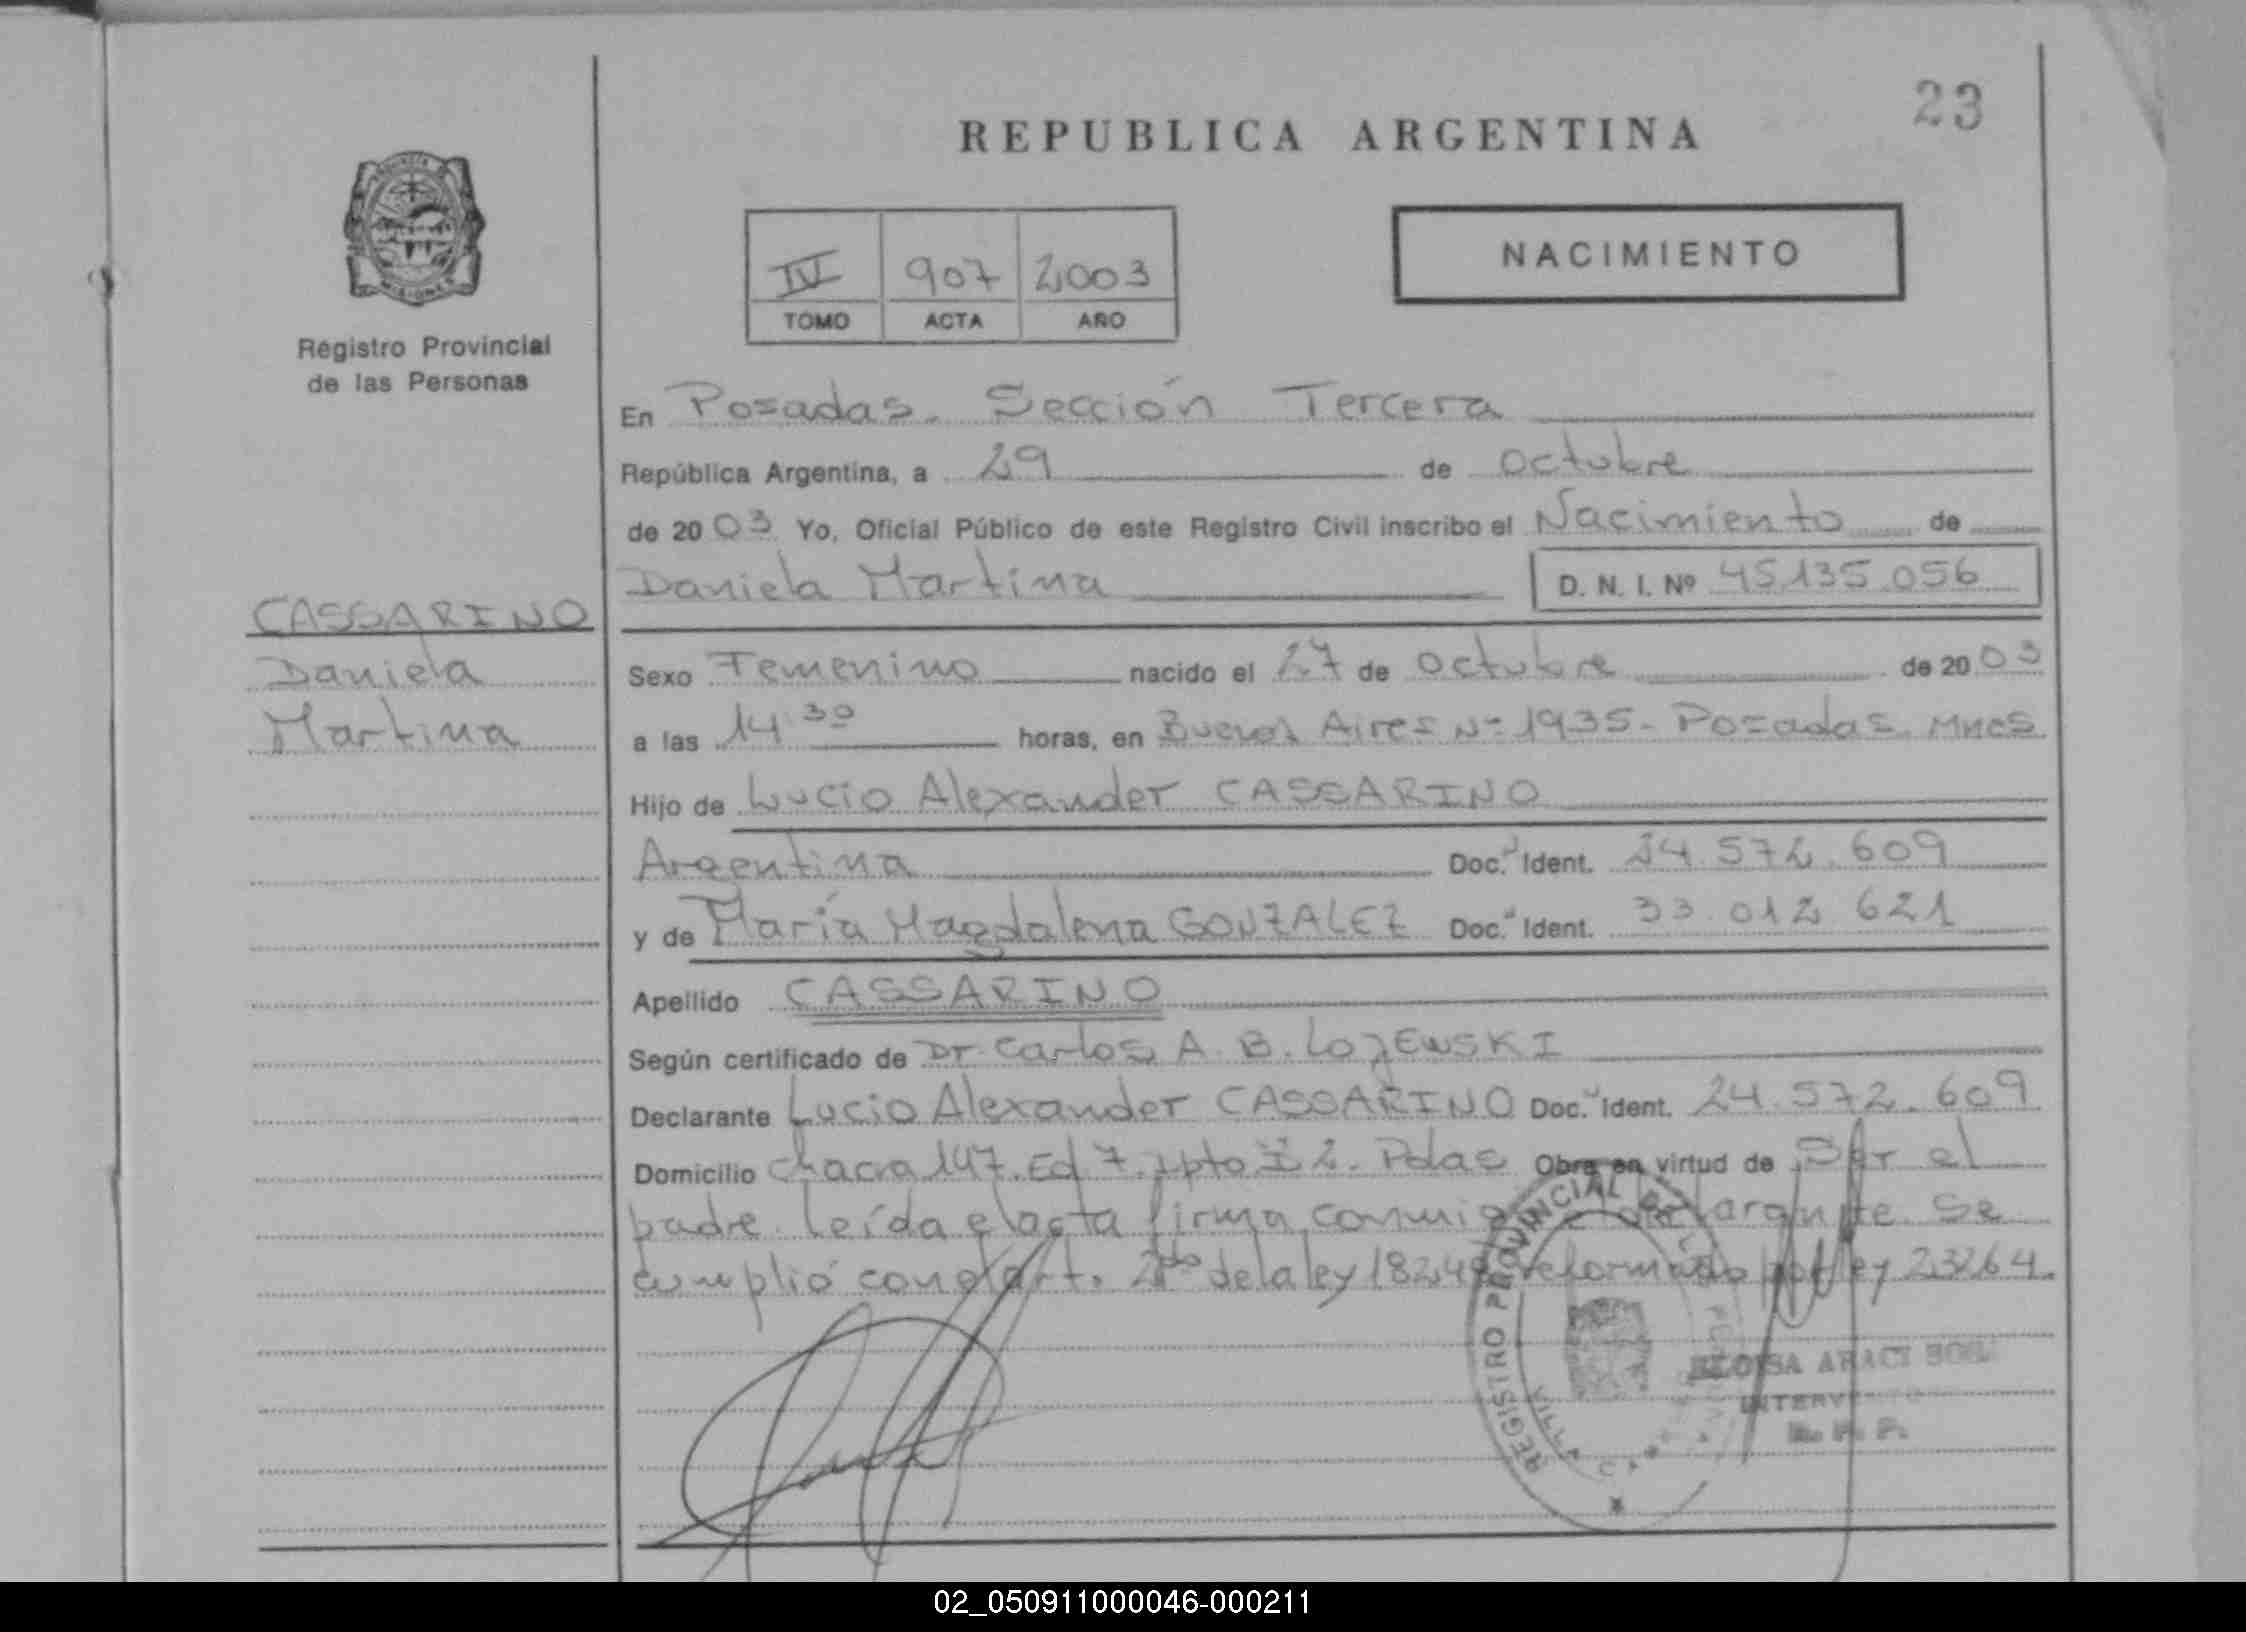 23
REPUBLICA ARGENTINA
PROVINCIA DE
MISIONES
Registro Provincial
de las Personas
IV 907 2003
TOMO ACTA AÑO
NACIMIENTO
En Posadas. Sección Tercera
República Argentina, a 29 de octubre
de 2003 Yo, Oficial Público de este Registro Civil inscribo el Nacimiento de
Daniela Martina D. N. I. Nº 45.135.056
CASSARINO
Daniela
Martina
Sexo Femenino nacido el 27 de octubre de 2003
a las 14:30 horas, en Buenos Aires Nº 1935 - Posadas. Mnes
Hijo de Lucio Alexander CASSARINO
Argentina Doc. Ident. 24.572.609
y de María Magdalena GONZALEZ Doc. Ident. 33.012.621
Apellido CASSARINO
Según certificado de Dr. Carlos A. B. LOJEWSKI
Declarante Lucio Alexander CASSARINO Doc. Ident. 24.572.609
Domicilio chacra 147. Ed 7. Dpto I 2. Pdas Obra en virtud de Ser el
padre. leída el acta firma conmigo el declarante. Se
cumplió con el art. 2do de la ley 18248 reformado por ley 23264.
REGISTRO PROVINCIAL DE LAS
ELOISA ARACI
R. P. P.
02_050911000046-000211